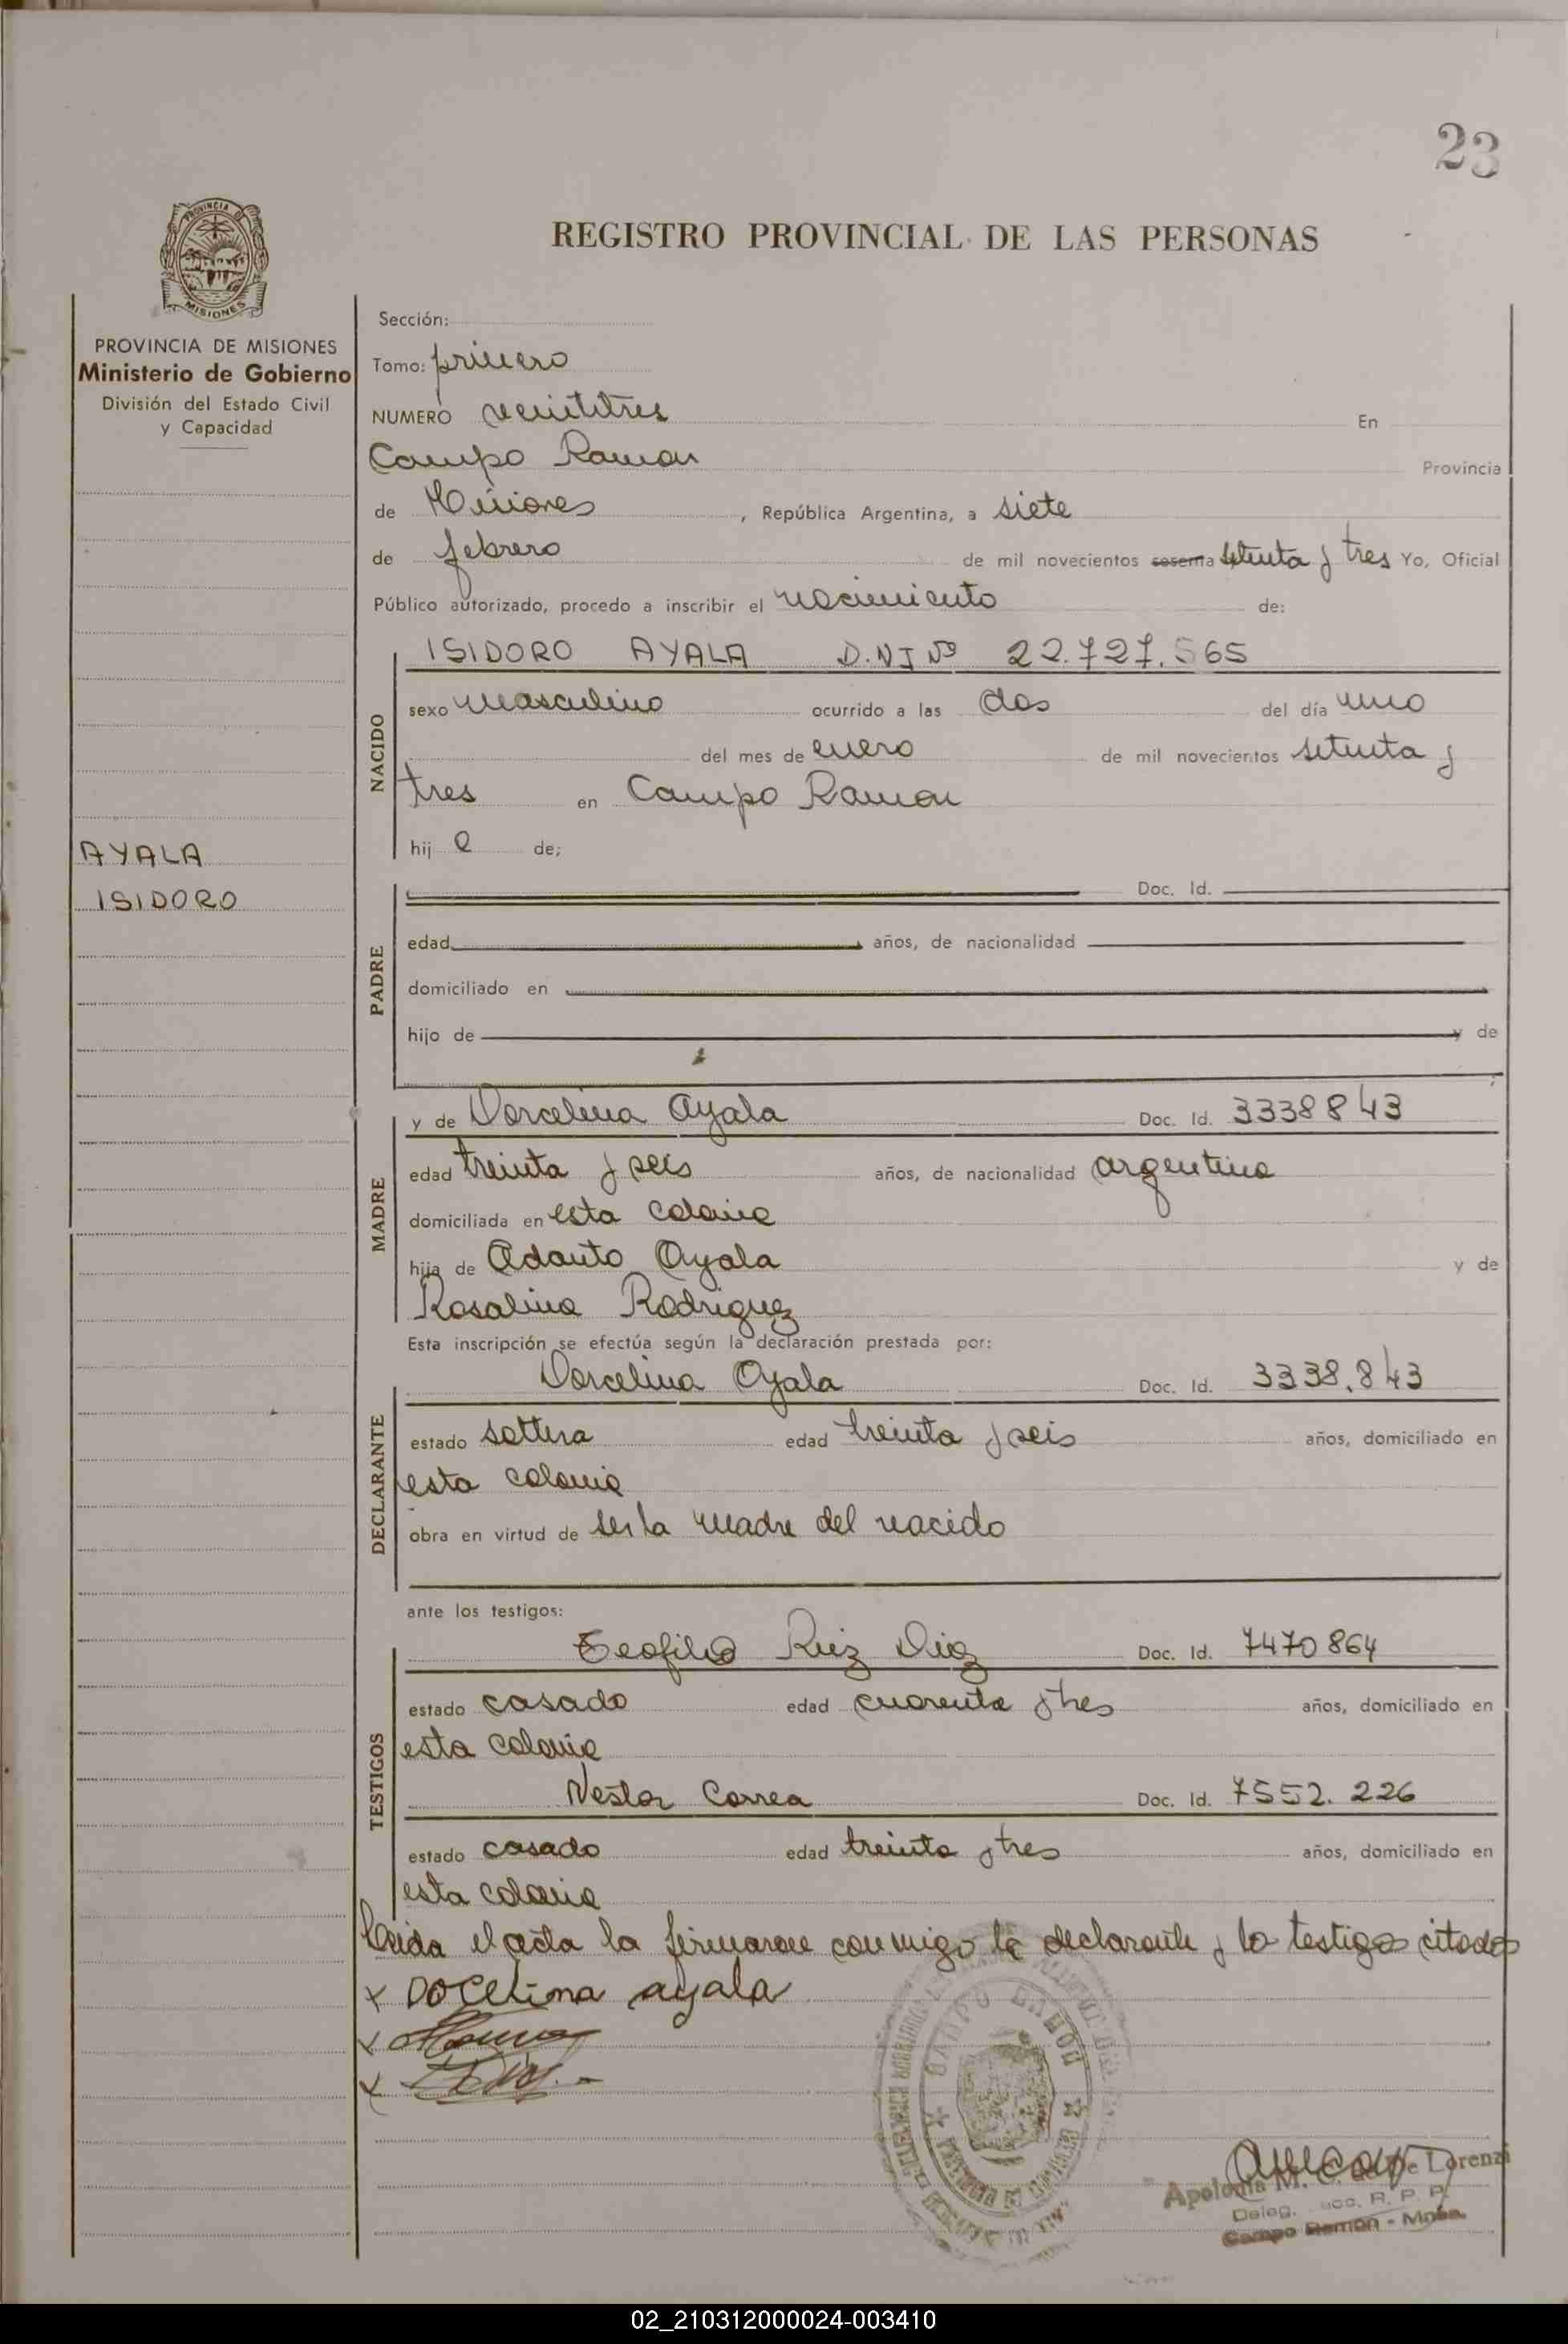 23
PROVINCIA DE
MISIONES
REGISTRO PROVINCIAL DE LAS PERSONAS
PROVINCIA DE MISIONES
Ministerio de Gobierno
División del Estado Civil
y Capacidad
AYALA
ISIDORO
Sección:
Tomo: primero
NUMERO veintitres En
Campo Ramon Provincia
de Misiones, República Argentina, a siete
de febrero de mil novecientos sesenta setenta y tres Yo, Oficial
Público autorizado, procedo a inscribir el nacimiento de:
NACIDO
ISIDORO AYALA D.N.I Nº 22.727.565
sexo masculino ocurrido a las dos del día uno
del mes de enero de mil novecientos setenta y
tres en Campo Ramon
hij o de;
PADRE
Doc. Id.
edad años, de nacionalidad
domiciliado en
hijo de y de
MADRE
y de Dorcelina Ayala Doc. Id. 3338843
edad treinta y seis años, de nacionalidad argentina
domiciliada en esta colonia
hija de Adauto Ayala y de
Rosalina Rodriguez
Esta inscripción se efectúa según la declaración prestada por:
DECLARANTE
Dorcelina Ayala Doc. Id. 3338.843
estado soltera edad treinta y seis años, domiciliado en
esta colonia
obra en virtud de ser la madre del nacido
ante los testigos:
TESTIGOS
Teofilo Ruiz Diaz Doc. Id. 7470864
estado casado edad cuarenta y tres años, domiciliado en
esta colonia
Nestor Correa Doc. Id. 7552.226
estado casado edad treinta y tres años, domiciliado en
esta colonia
leida el acta la firmaron conmigo la declarante y lo testigos citados
x Docelina ayala
x
x
CAMPO RAMON
Apolonia M. C. de De Lorenzi
Deleg. R. P. P.
Campo Ramon - Mnes.
02_210312000024-003410